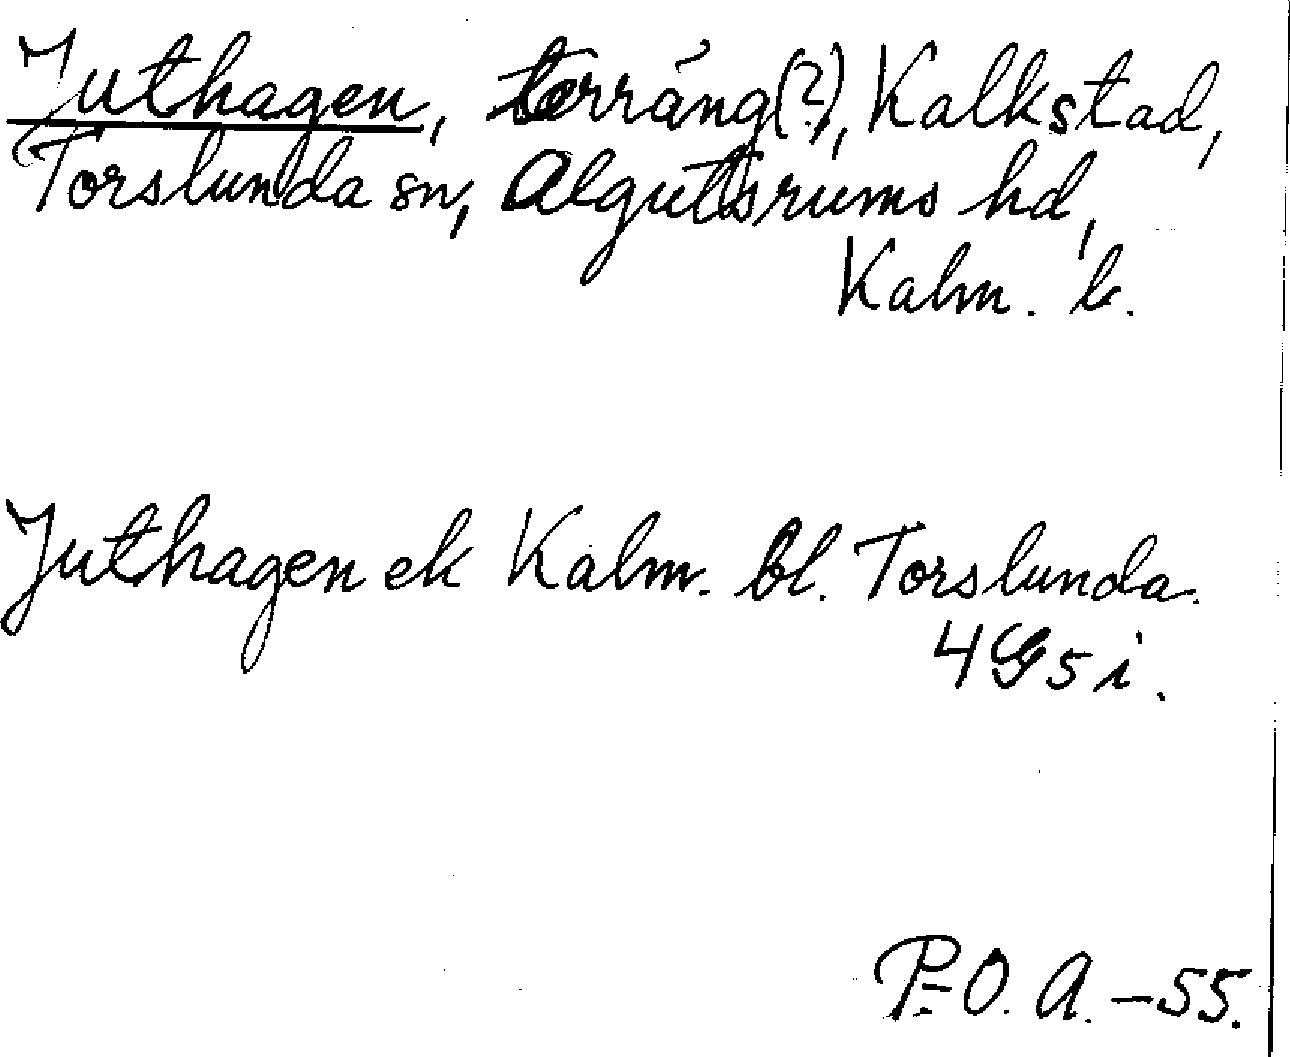 Juthagen, terräng(?), Kalkstad,
Torslunda sn, Algutsrums hd,
Kalm. l.
Juthagen ek Kalm. bl. Torslunda.
4G5i.
P-O. A. -55.